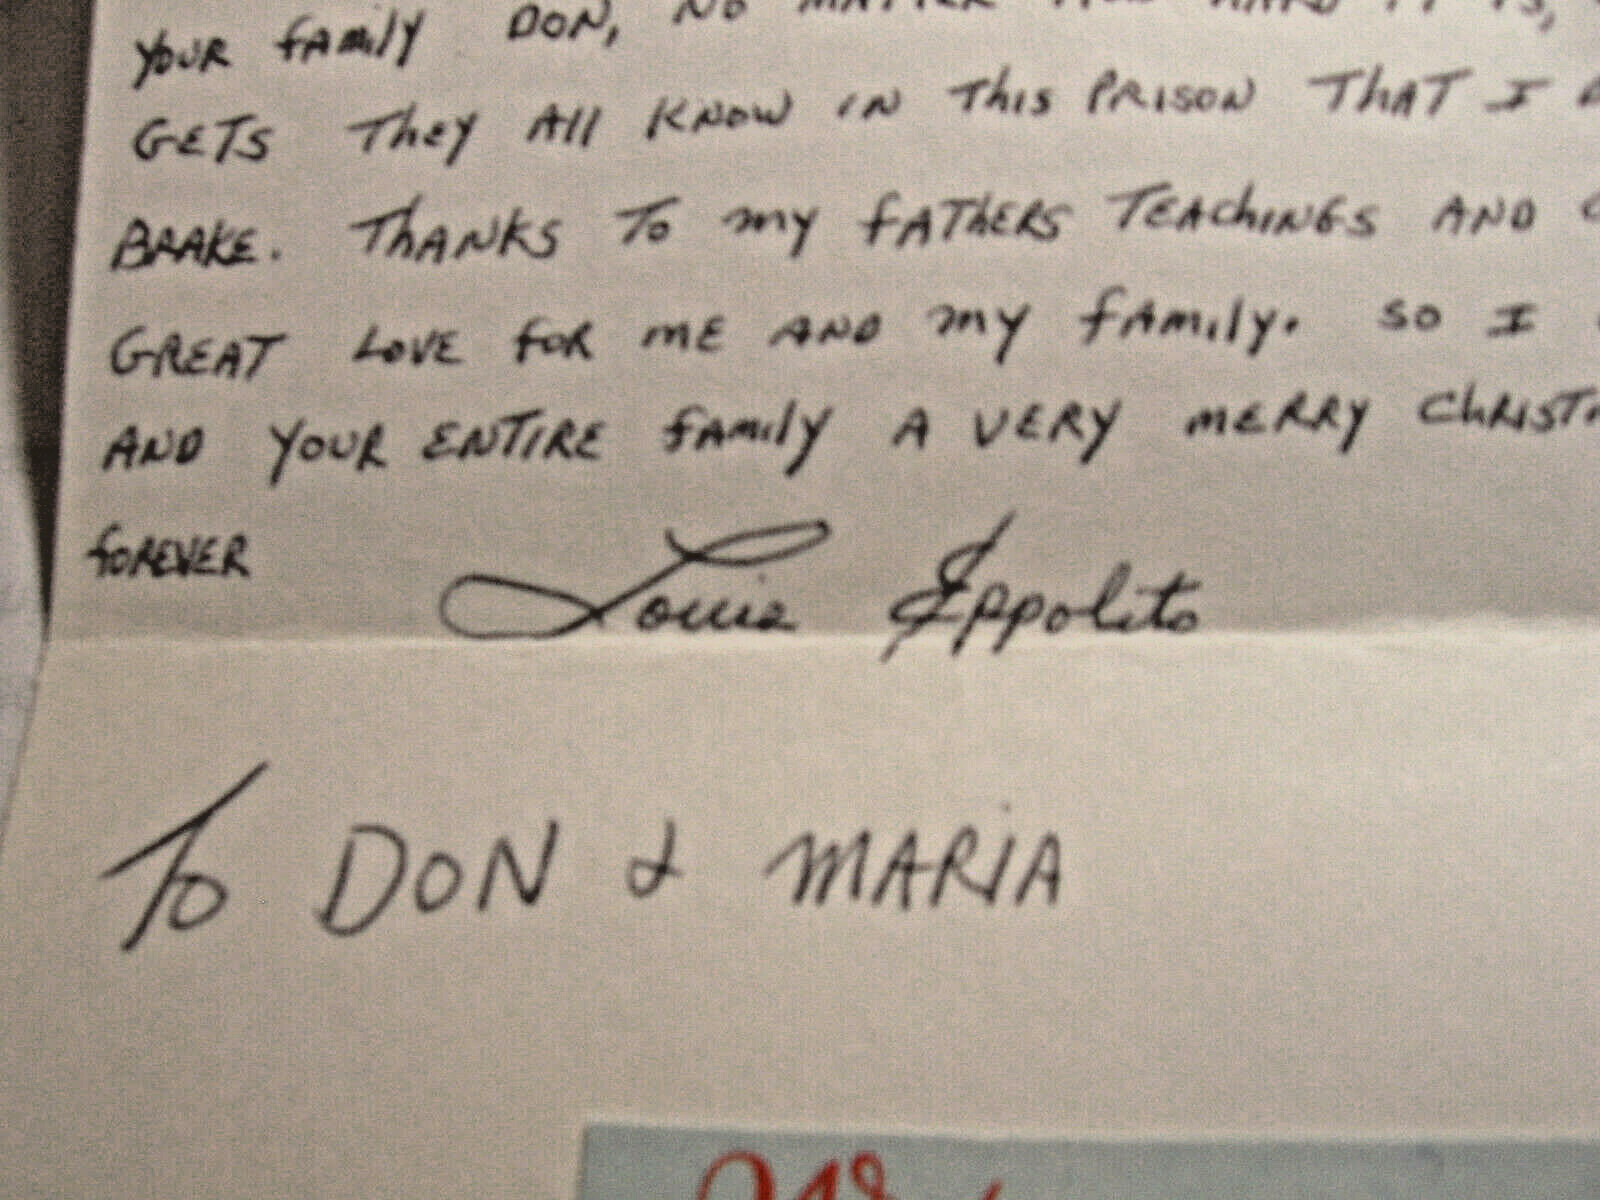 YOUR FAMILY DON, NO MATTER HOW HARD IT IS,
GETS THEY All KNOW IN THIS PRISON THAT I
BRAKE. THANKS TO MY FATHERS TEACHINGS AND
GREAT LOVE FOR ME AND MY FAMILY. SO I
AND YOUR ENTIRE FAMILY A VERY MERRY CHRIST
FOREVER Louis Eppolito
TO DON & MARIA